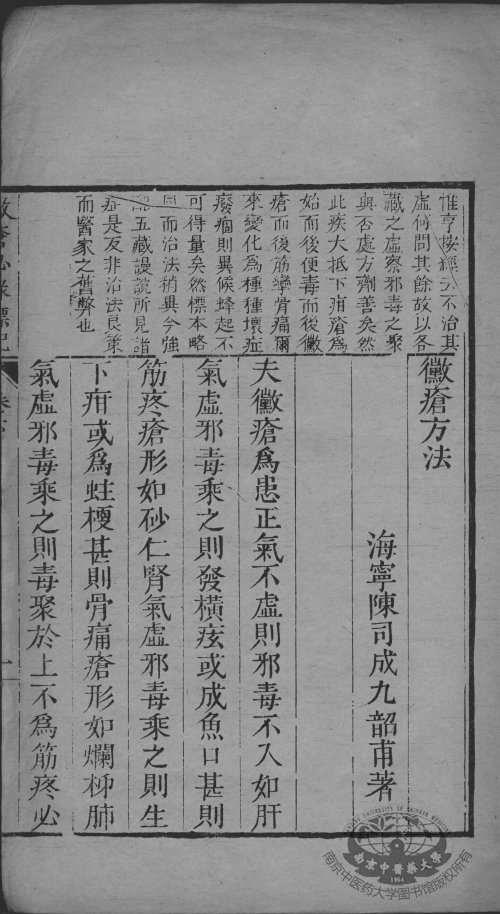 黴瘡方法
海寧陳司成九韶甫著
夫黴瘡爲患正氣不虛則邪毒不入如肝
氣虛邪毒乘之則發橫痃或成魚口甚則
筋疼瘡形如砂仁腎氣虛邪毒乘之則生
下疳或爲蛀梗甚則骨痛瘡形如爛柹肺
氣虛邪毒乘之則毒聚於上不爲筋疼必
惟亨按經云不治其
虛何問其餘故以各
藏之虛察邪毒之聚
與否處方劑善矣然
此疾大抵下疳瘡爲
始而後便毒而後黴
瘡而後筋攣骨痛爾
來變化爲種種壞症
癈痼則異候蜂起不
可得量矣然標本略
同而治法稍異今強
配五藏謾說所見諸
症是反非治法良策
而醫家之舊弊也
黴瘡必錄標記
卷下
一
南京中醫藥大學
1954
南京中医药大学图书馆版权所有